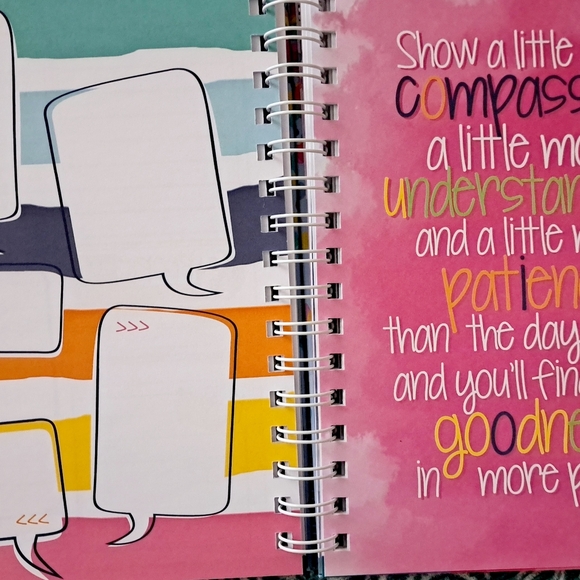 Show a little
compass
a little mo
understan
and a little
patien
than the day
and you'll fin
goodne
in more p